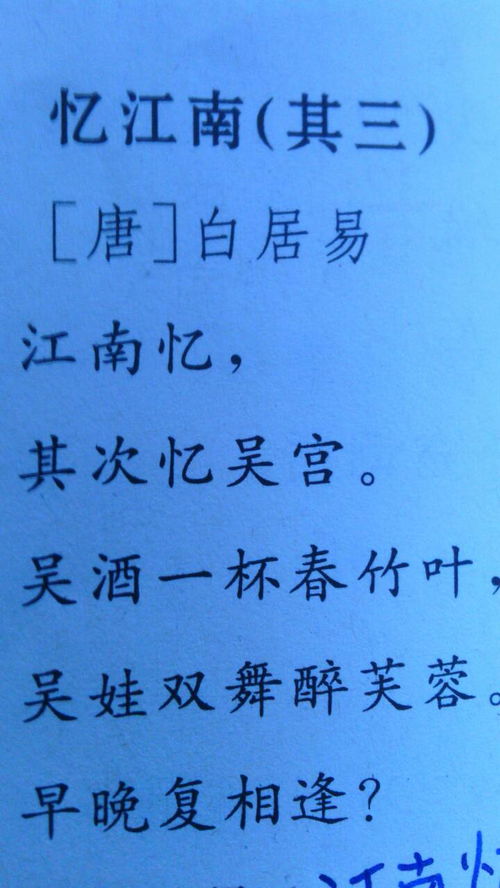 忆江南(其三)
[唐]白居易
江南忆，
其次忆吴宫。
吴酒一杯春竹叶，
吴娃双舞醉芙蓉。
早晚复相逢？
江南忆